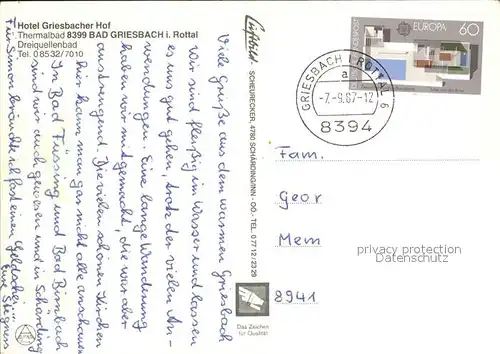 Hotel Griesbacher Hof
Thermalbad 8399 BAD GRIESBACH i. Rottal
Dreiquellenbad
Tel. 0 85 32/7010
Viele Grüße aus dem warmen Griesbach
Wir sind fleißig im Wasser und lassen
es uns gut gehen, trotz der vielen An-
wendungen. Eine lange Wanderung
haben wir mitgemacht, die war aber
anstrengend. Die vielen schönen Kirchen
hier kann man gar nicht alle anschauen
In Bad Füssing und Bad Birnbach
sind wir auch gewesen und in Schärding
Für Simon bräuchte ich fast einen Geldscheißer...
Eure
Luftbild
SCHEURECKER, 4780 SCHÄRDING/INN - OÖ - TEL. 0 77 12 / 23 29
Das Zeichen
für Qualität
EUROPA 60
BUNDESPOST
GRIESBACH I ROTTAL 6
a
-7.-9.87-12
8394
Fam.
Geor
Mem
8941
proprietary material
www.oldthing.de